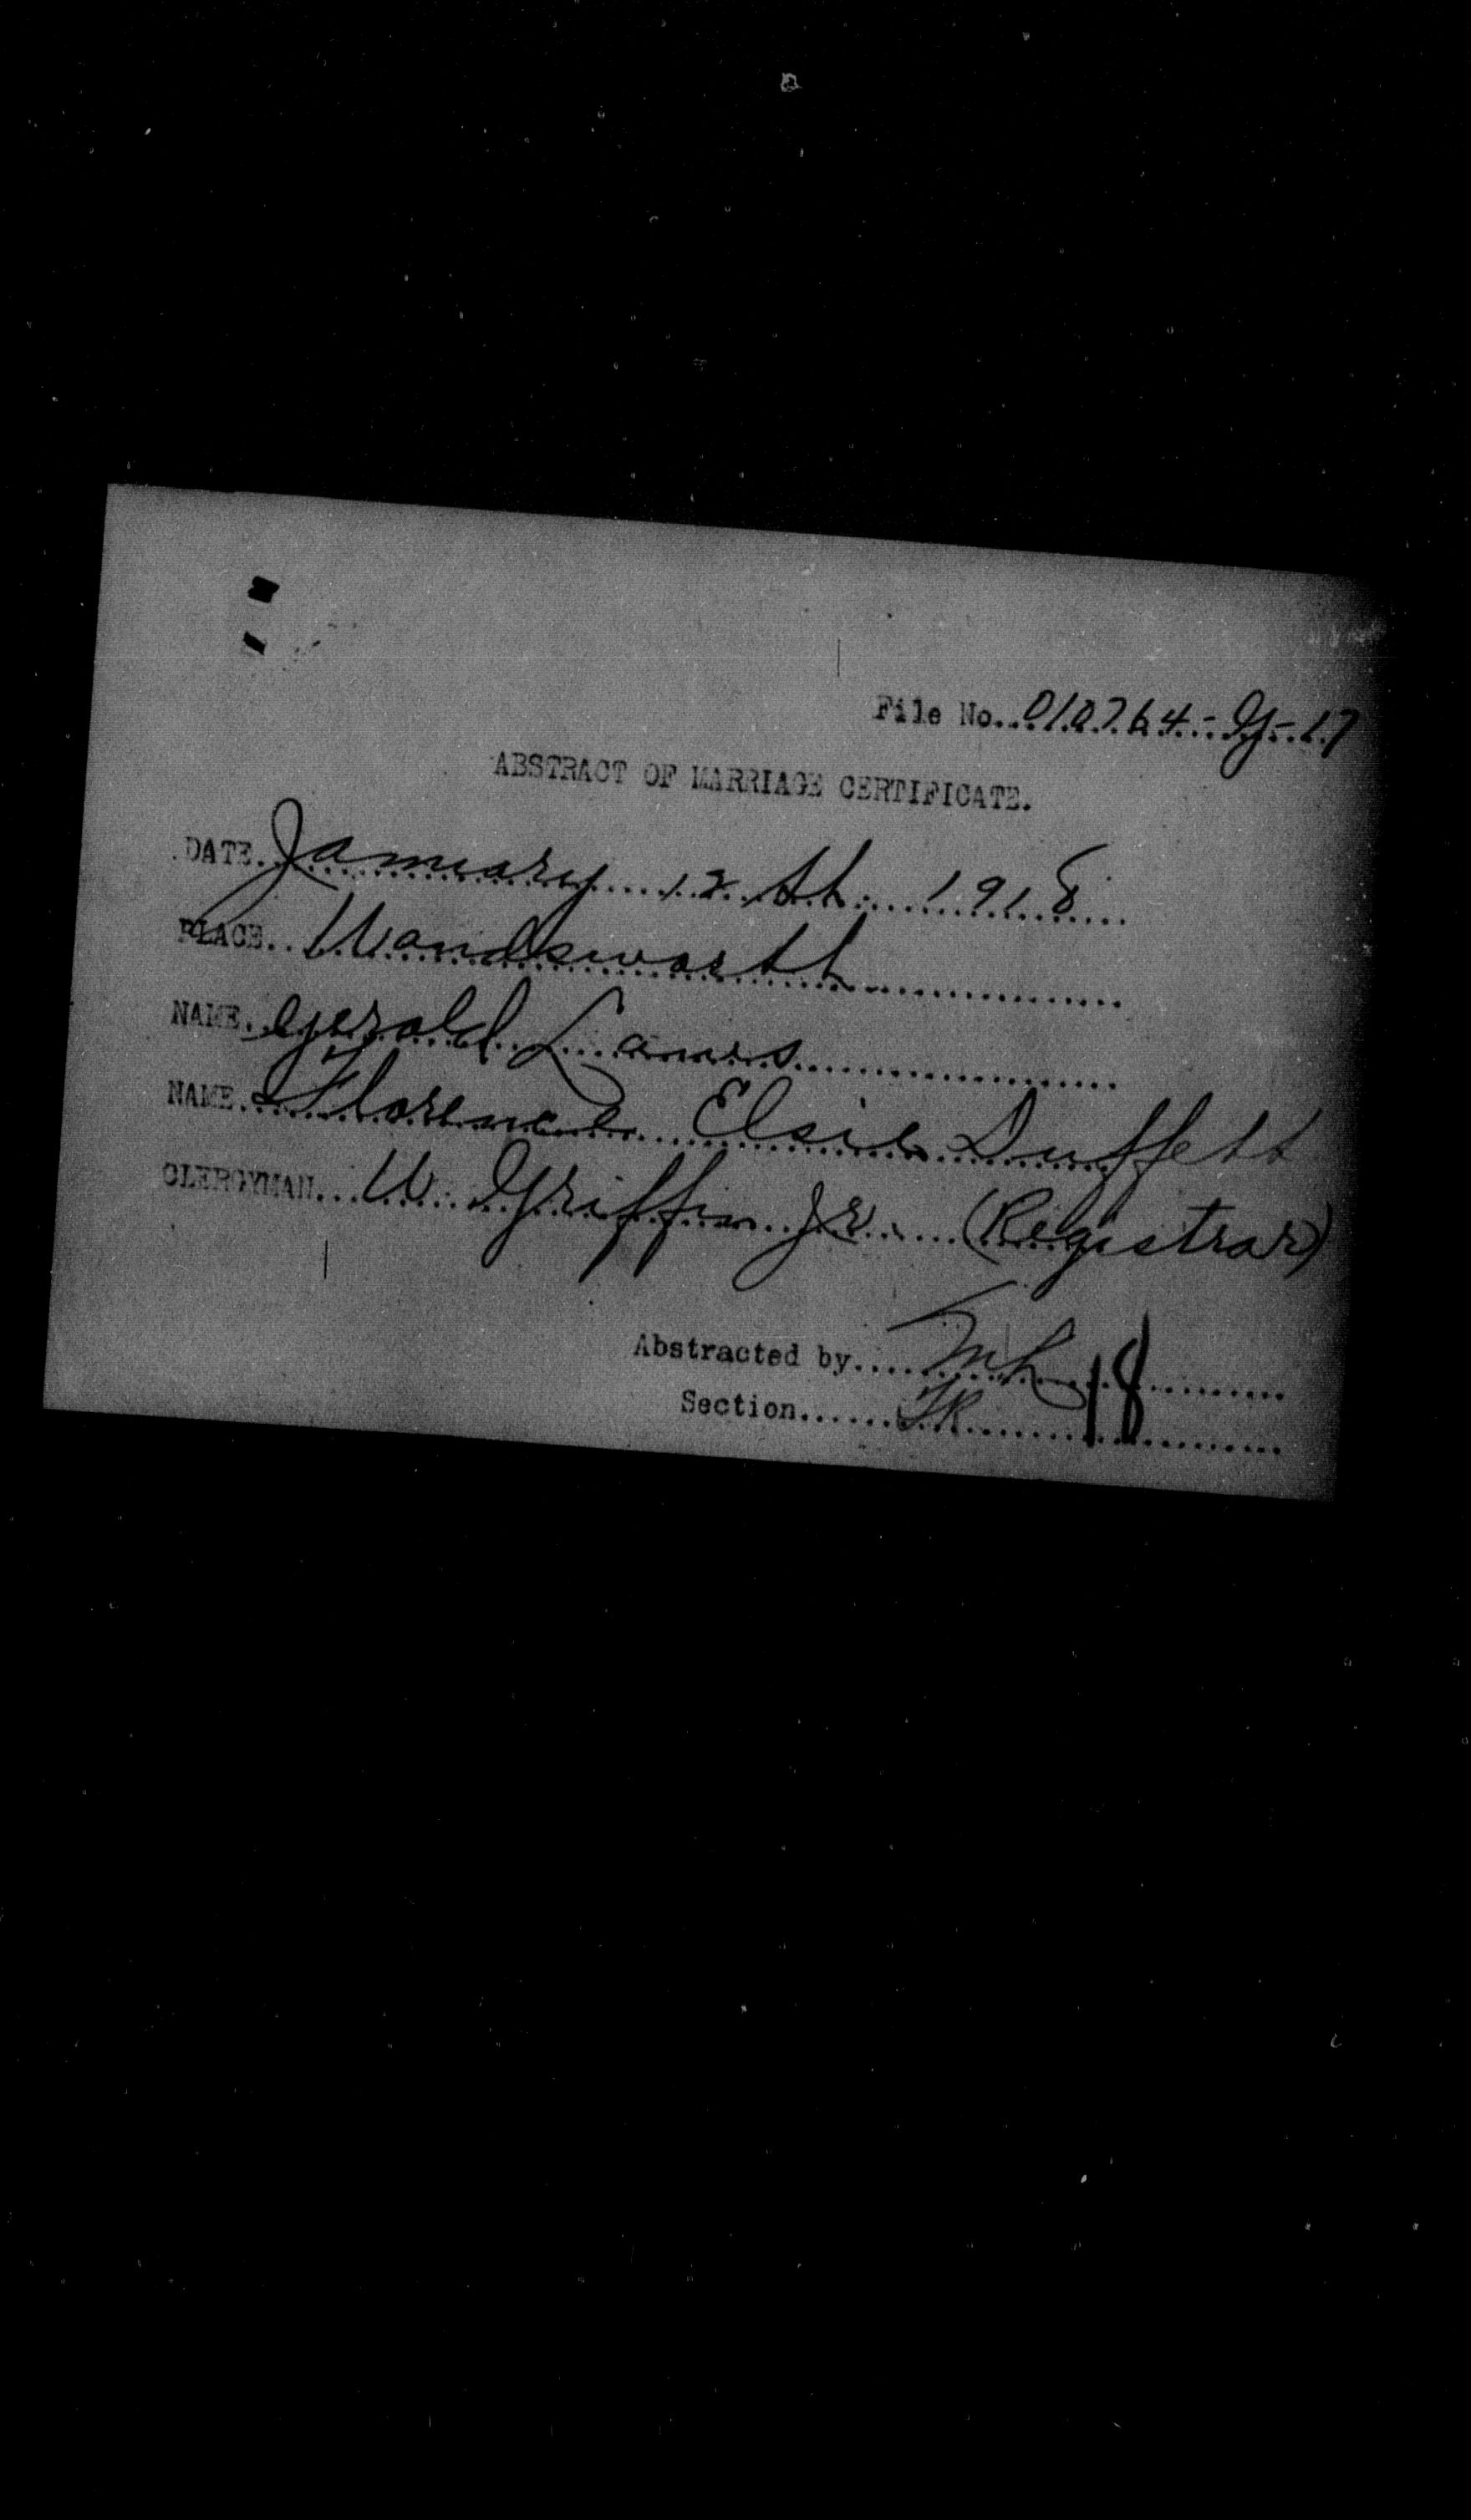 File No. 010764-Y-17
ABSTRACT OF MARRIAGE CERTIFICATE.
DATE. January 12th 1918
PLACE. Wandsworth
NAME. Gerald
NAME. Florence Elsie Duffett
CLERGYMAN. W. Griffin Jr. (Registrar)
Abstracted by
Section
18